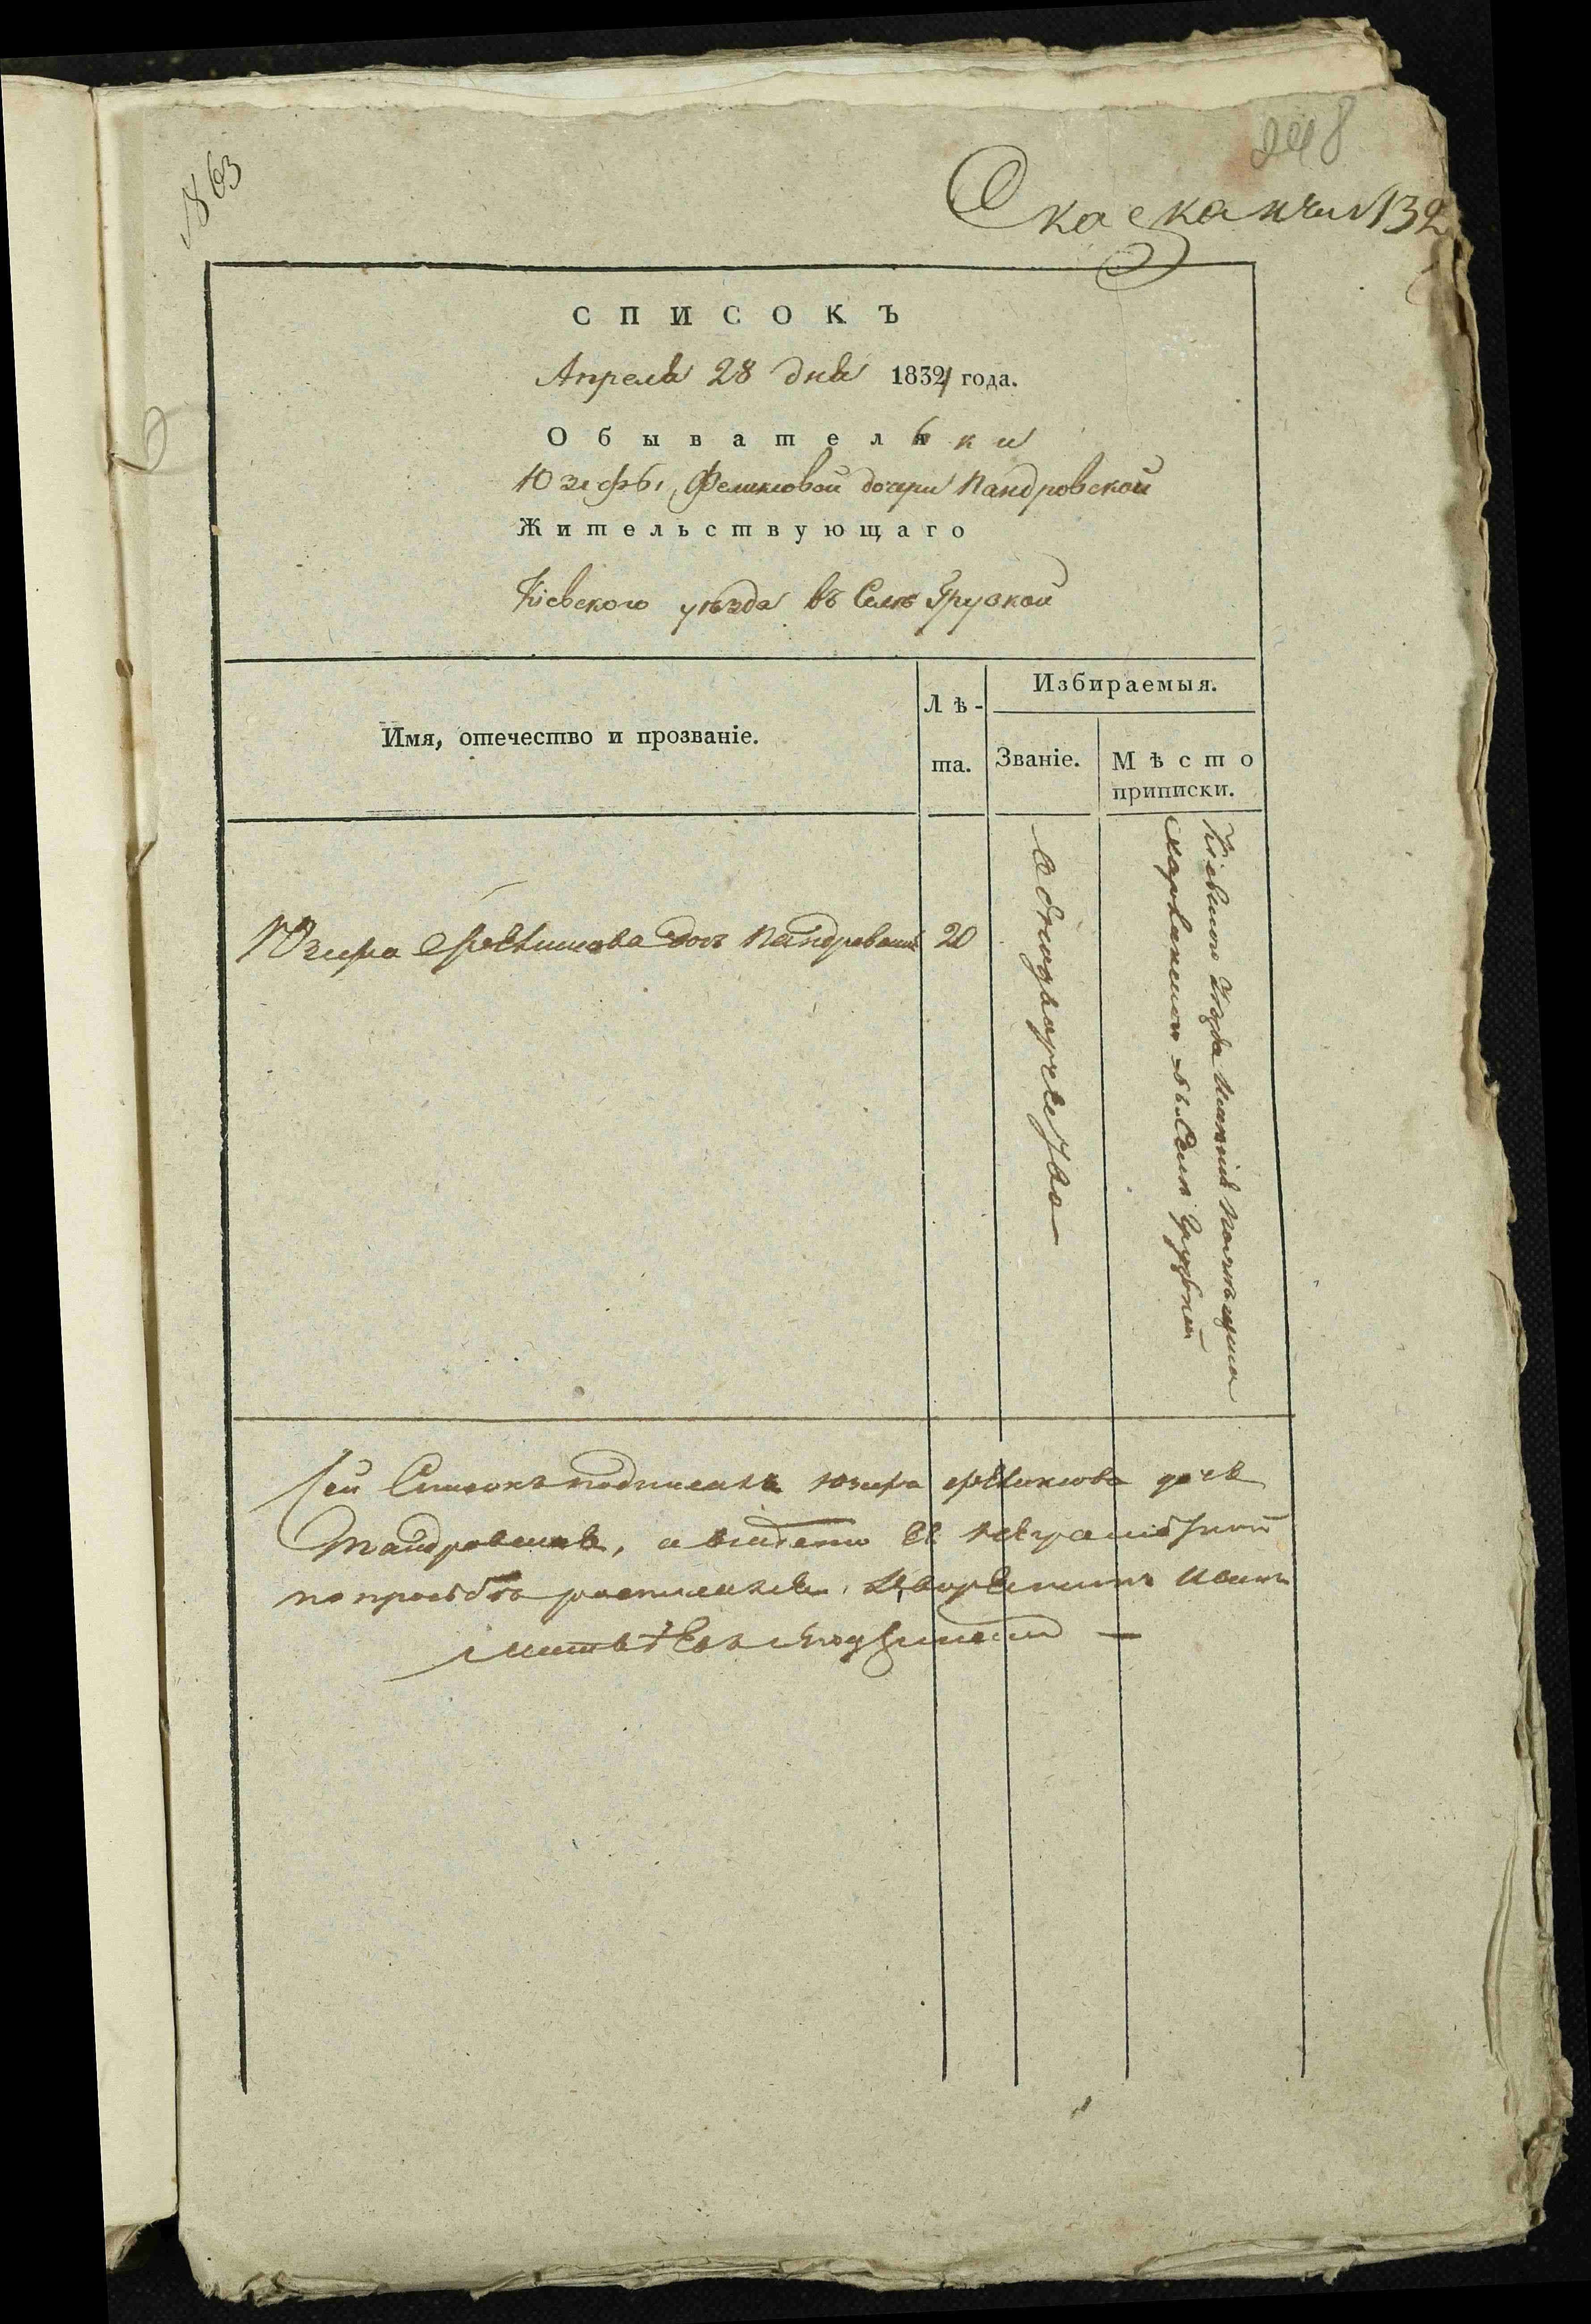 № 63
248
Сказка № 132
СПИСОКЪ
Апреля 28 дня 1832 года.
Обывательки
Юзефы Феликсовой дочери Пандровской
Жительствующаго
Кіевского уѣзда въ Селѣ Грузкой
Имя, отечество и прозваніе.
Лѣ-
та.
Избираемыя.
Званіе.
Мѣсто
приписки.
Юзефа Феликсова дочь Пандровская
20
Однодворчество
Кіевского уезда имѣнія помѣщика
въ Селѣ Грузкой
Сей Списокъ подписала Юзефа Феликсова дочь
Пандровская, а вместо её неграмотной
по прозбѣ росписался Дворянинъ Иванъ